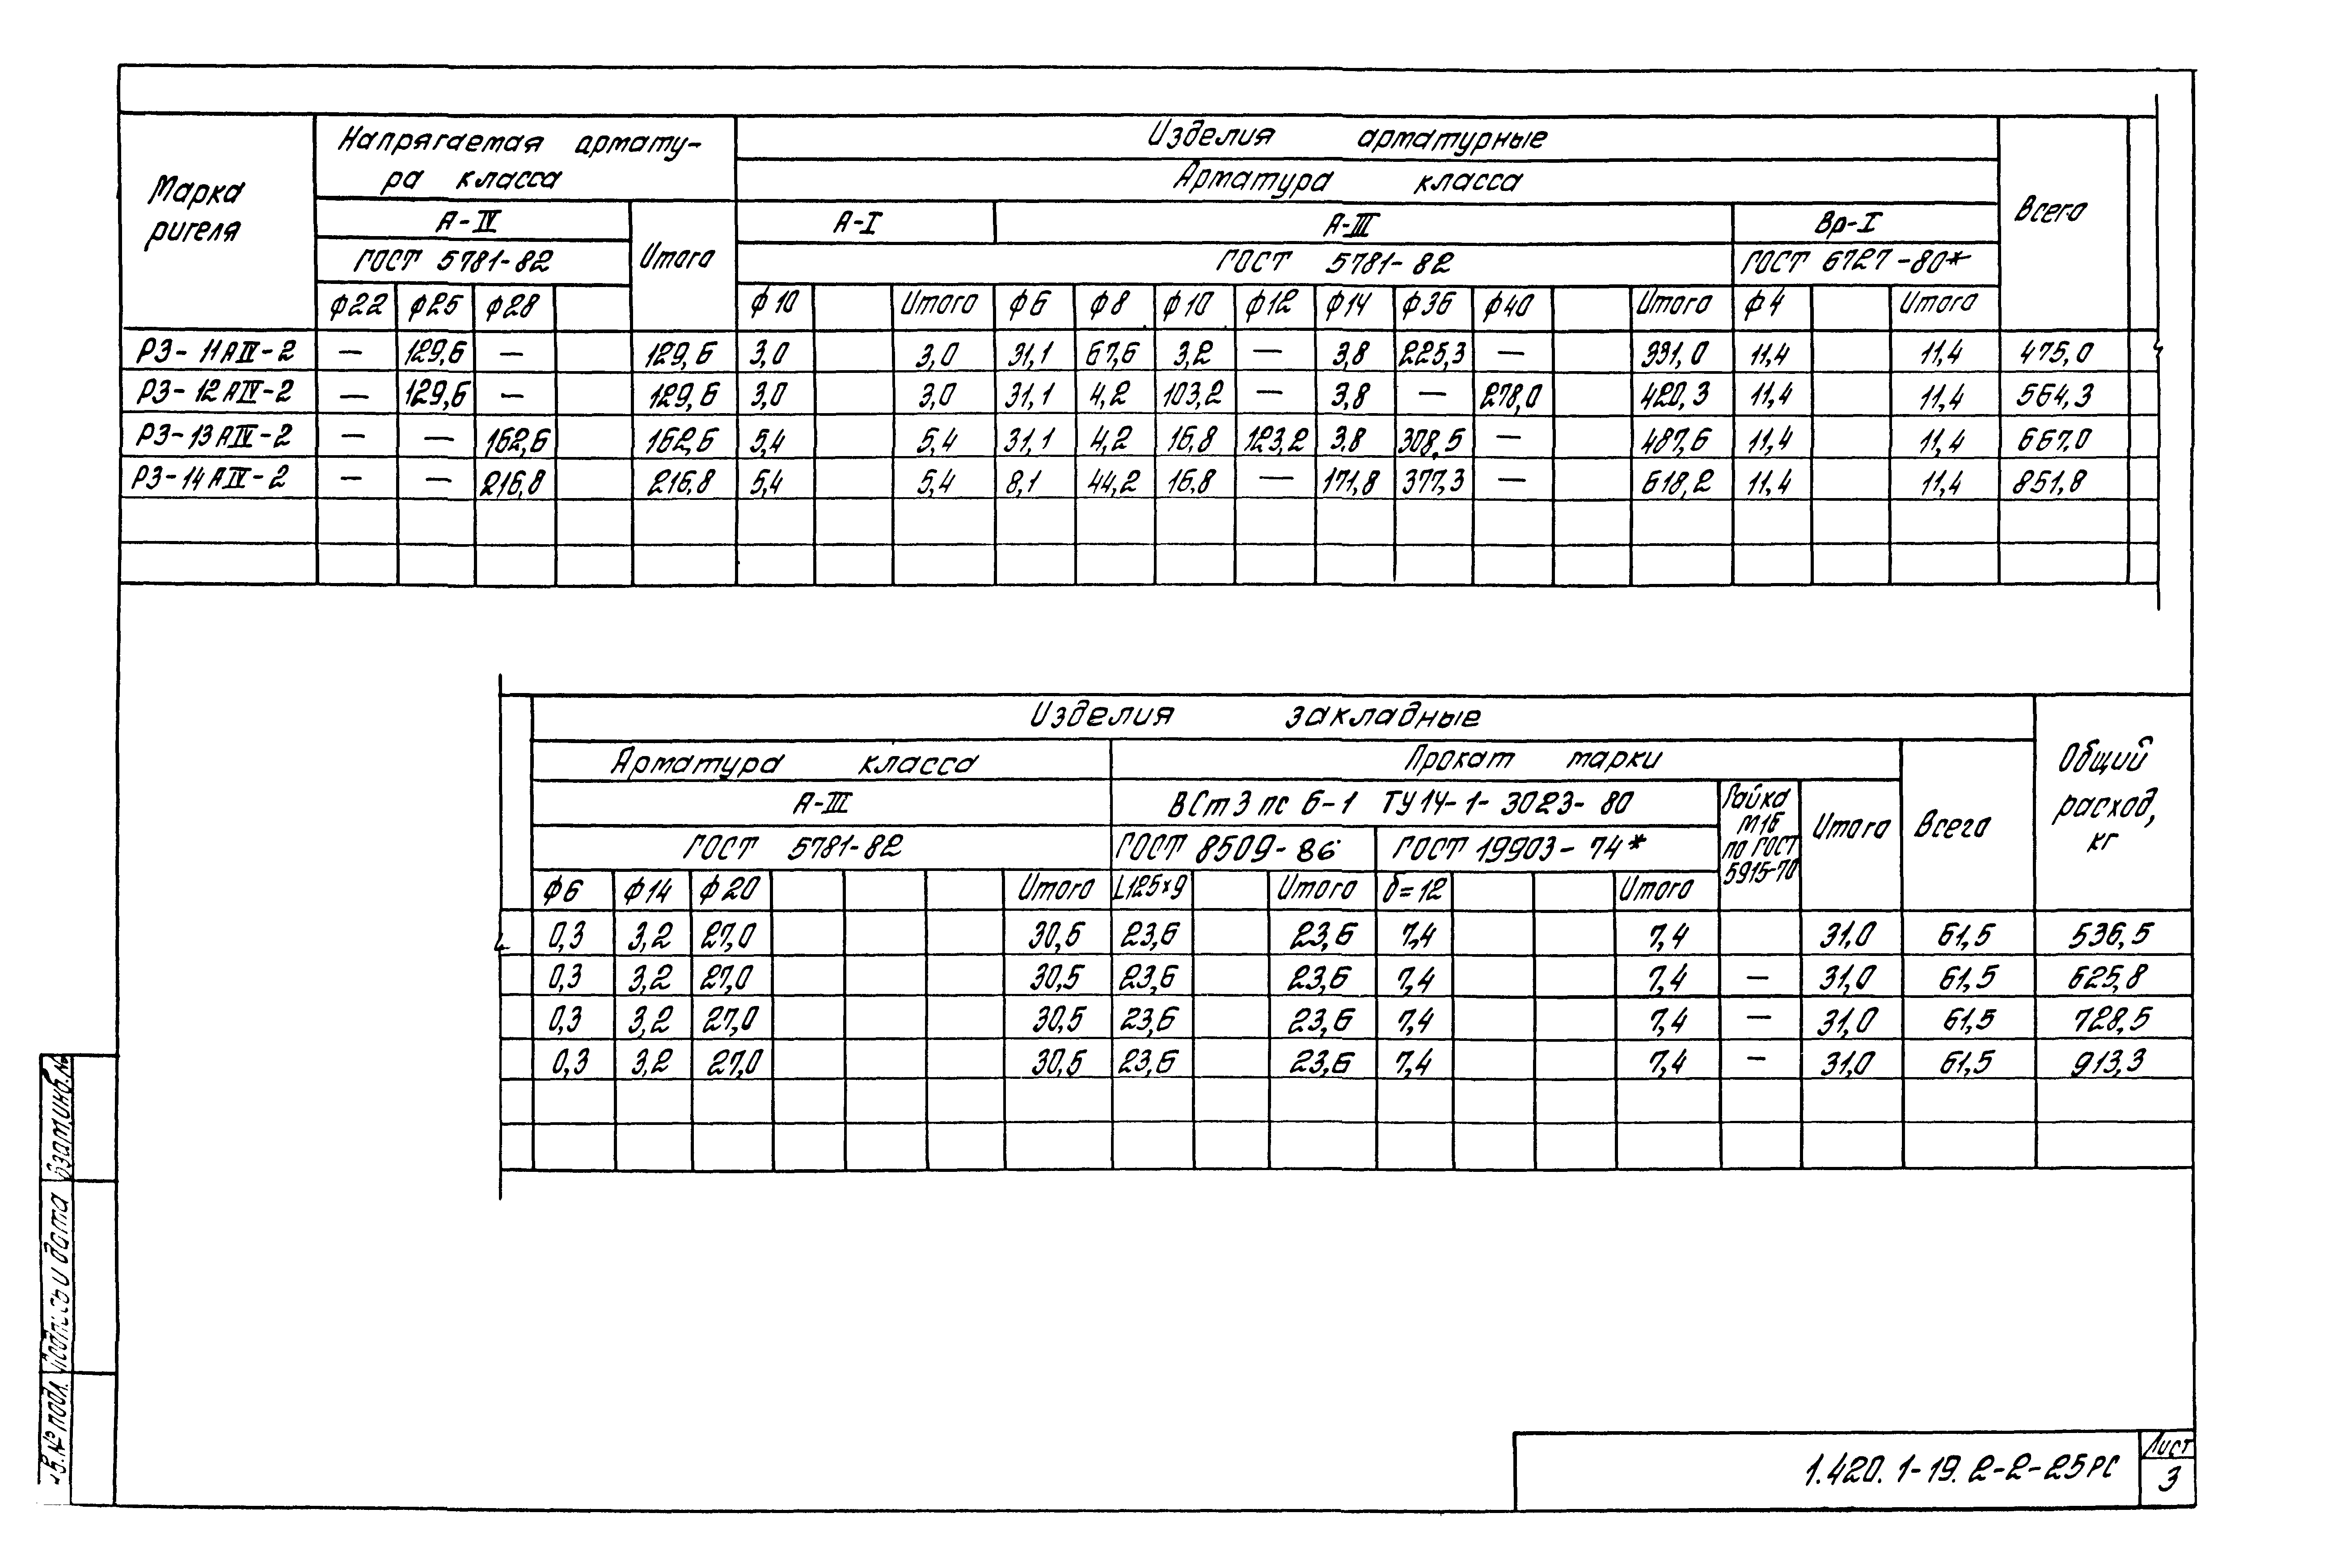 Марка ригеля
Напрягаемая армату-
ра класса
Изделия арматурные
Арматура класса
Всего
А-IV
Итого
А-I
А-III
Вр-I
ГОСТ 5781-82
ГОСТ 5781-82
ГОСТ 6727-80*
ф22 ф25 ф28 ф10 Итого ф6 ф8 ф10 ф12 ф14 ф36 ф40 Итого ф4 Итого
Р3-11АIV-2 — 129,6 — 129,6 3,0 3,0 31,1 67,6 3,2 — 3,8 225,3 — 331,0 11,4 11,4 475,0
Р3-12АIV-2 — 129,6 — 129,6 3,0 3,0 31,1 4,2 103,2 — 3,8 — 278,0 420,3 11,4 11,4 564,3
Р3-13АIV-2 — — 162,6 162,6 5,4 5,4 31,1 4,2 16,8 123,2 3,8 308,5 — 487,6 11,4 11,4 667,0
Р3-14АIV-2 — — 216,8 216,8 5,4 5,4 8,1 44,2 16,8 — 171,8 377,3 — 618,2 11,4 11,4 851,8
Изделия закладные
Общий расход, кг
Арматура класса
Прокат марки
Всего
А-III
ВСт3пс6-1 ТУ14-1-3023-80
Гайка М16 по ГОСТ 5915-70
Итого
ГОСТ 5781-82
ГОСТ 8509-86
ГОСТ 19903-74*
ф6 ф14 ф20 Итого L125х9 Итого δ=12 Итого
0,3 3,2 27,0 30,5 23,6 23,6 7,4 7,4 31,0 61,5 536,5
0,3 3,2 27,0 30,5 23,6 23,6 7,4 7,4 — 31,0 61,5 625,8
0,3 3,2 27,0 30,5 23,6 23,6 7,4 7,4 — 31,0 61,5 728,5
0,3 3,2 27,0 30,5 23,6 23,6 7,4 7,4 — 31,0 61,5 913,3
Взам.инв.№
Подпись и дата
№ подл.
1.420.1-19.2-2-25РС
Лист
3